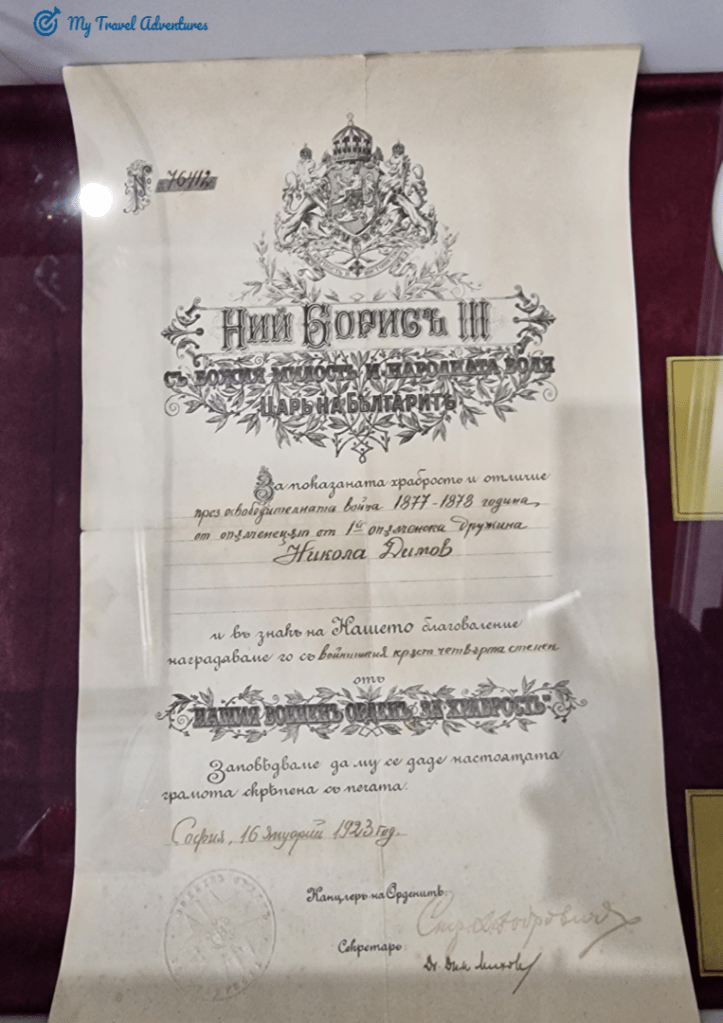 My Travel Adventures
№ 7641
Ний Борисъ III
съ Божия милость и народната воля
Царь на Бълтаритѣ
За показаната храбрость и отличие
през освободителната война 1877-1878 година,
от опълченецът от 1ª опълченска дружина
Никола Димов
и въ знакъ на Нашето благоволение
наградяваме го съ войнишкия кръст четвърта степен
отъ
"Нашия Военен Орденъ за Храбрость"
Заповѣдваме да му се даде настоящата
грамота скрѣпена съ печата.
София, 16 януарий 1923 год.
Канцлеръ на Орденитѣ:
Секретарь:
Др. Дим.